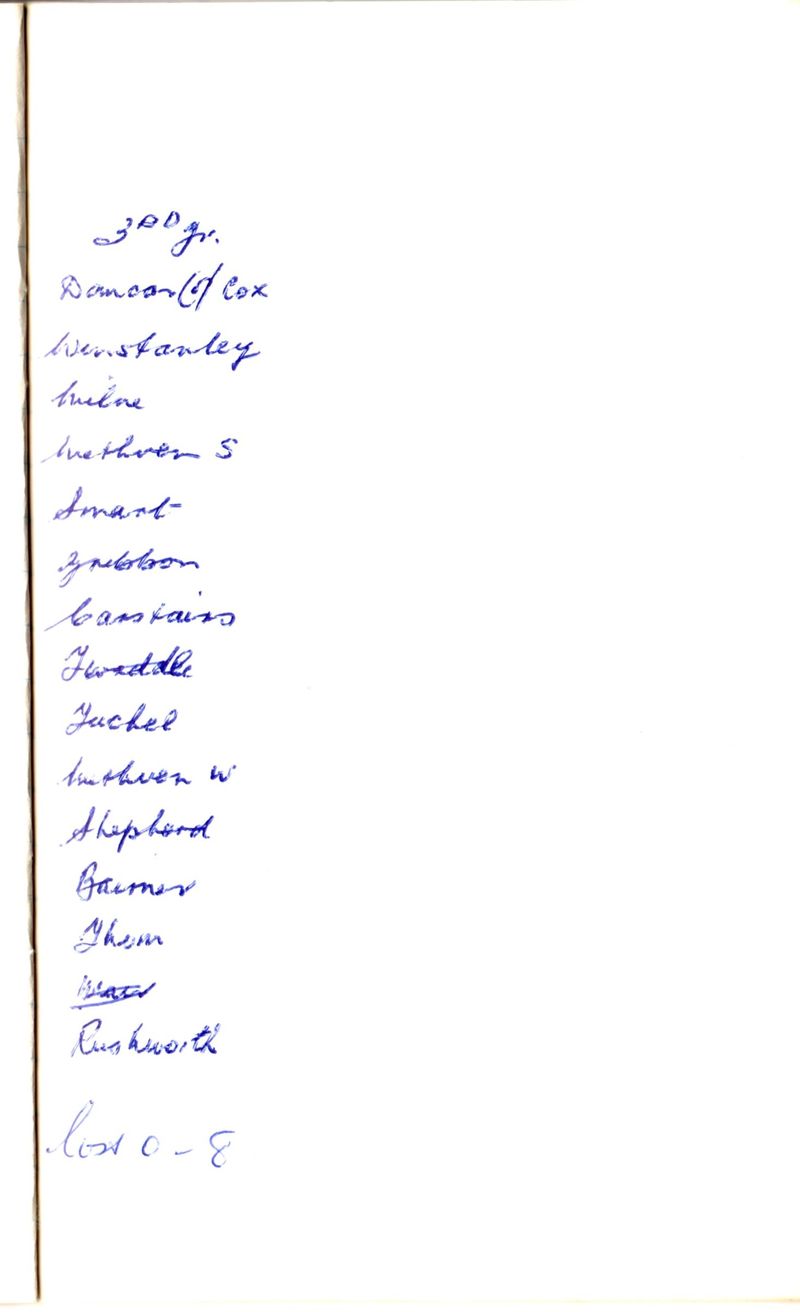 3RD gr.
Cox
Winstanley
Milne
Methven S
Smart
Gribbon
Carstairs
Twaddle
Tuchel
Methven W
Shepherd
Thom
Rushworth
Lost 0 - 8